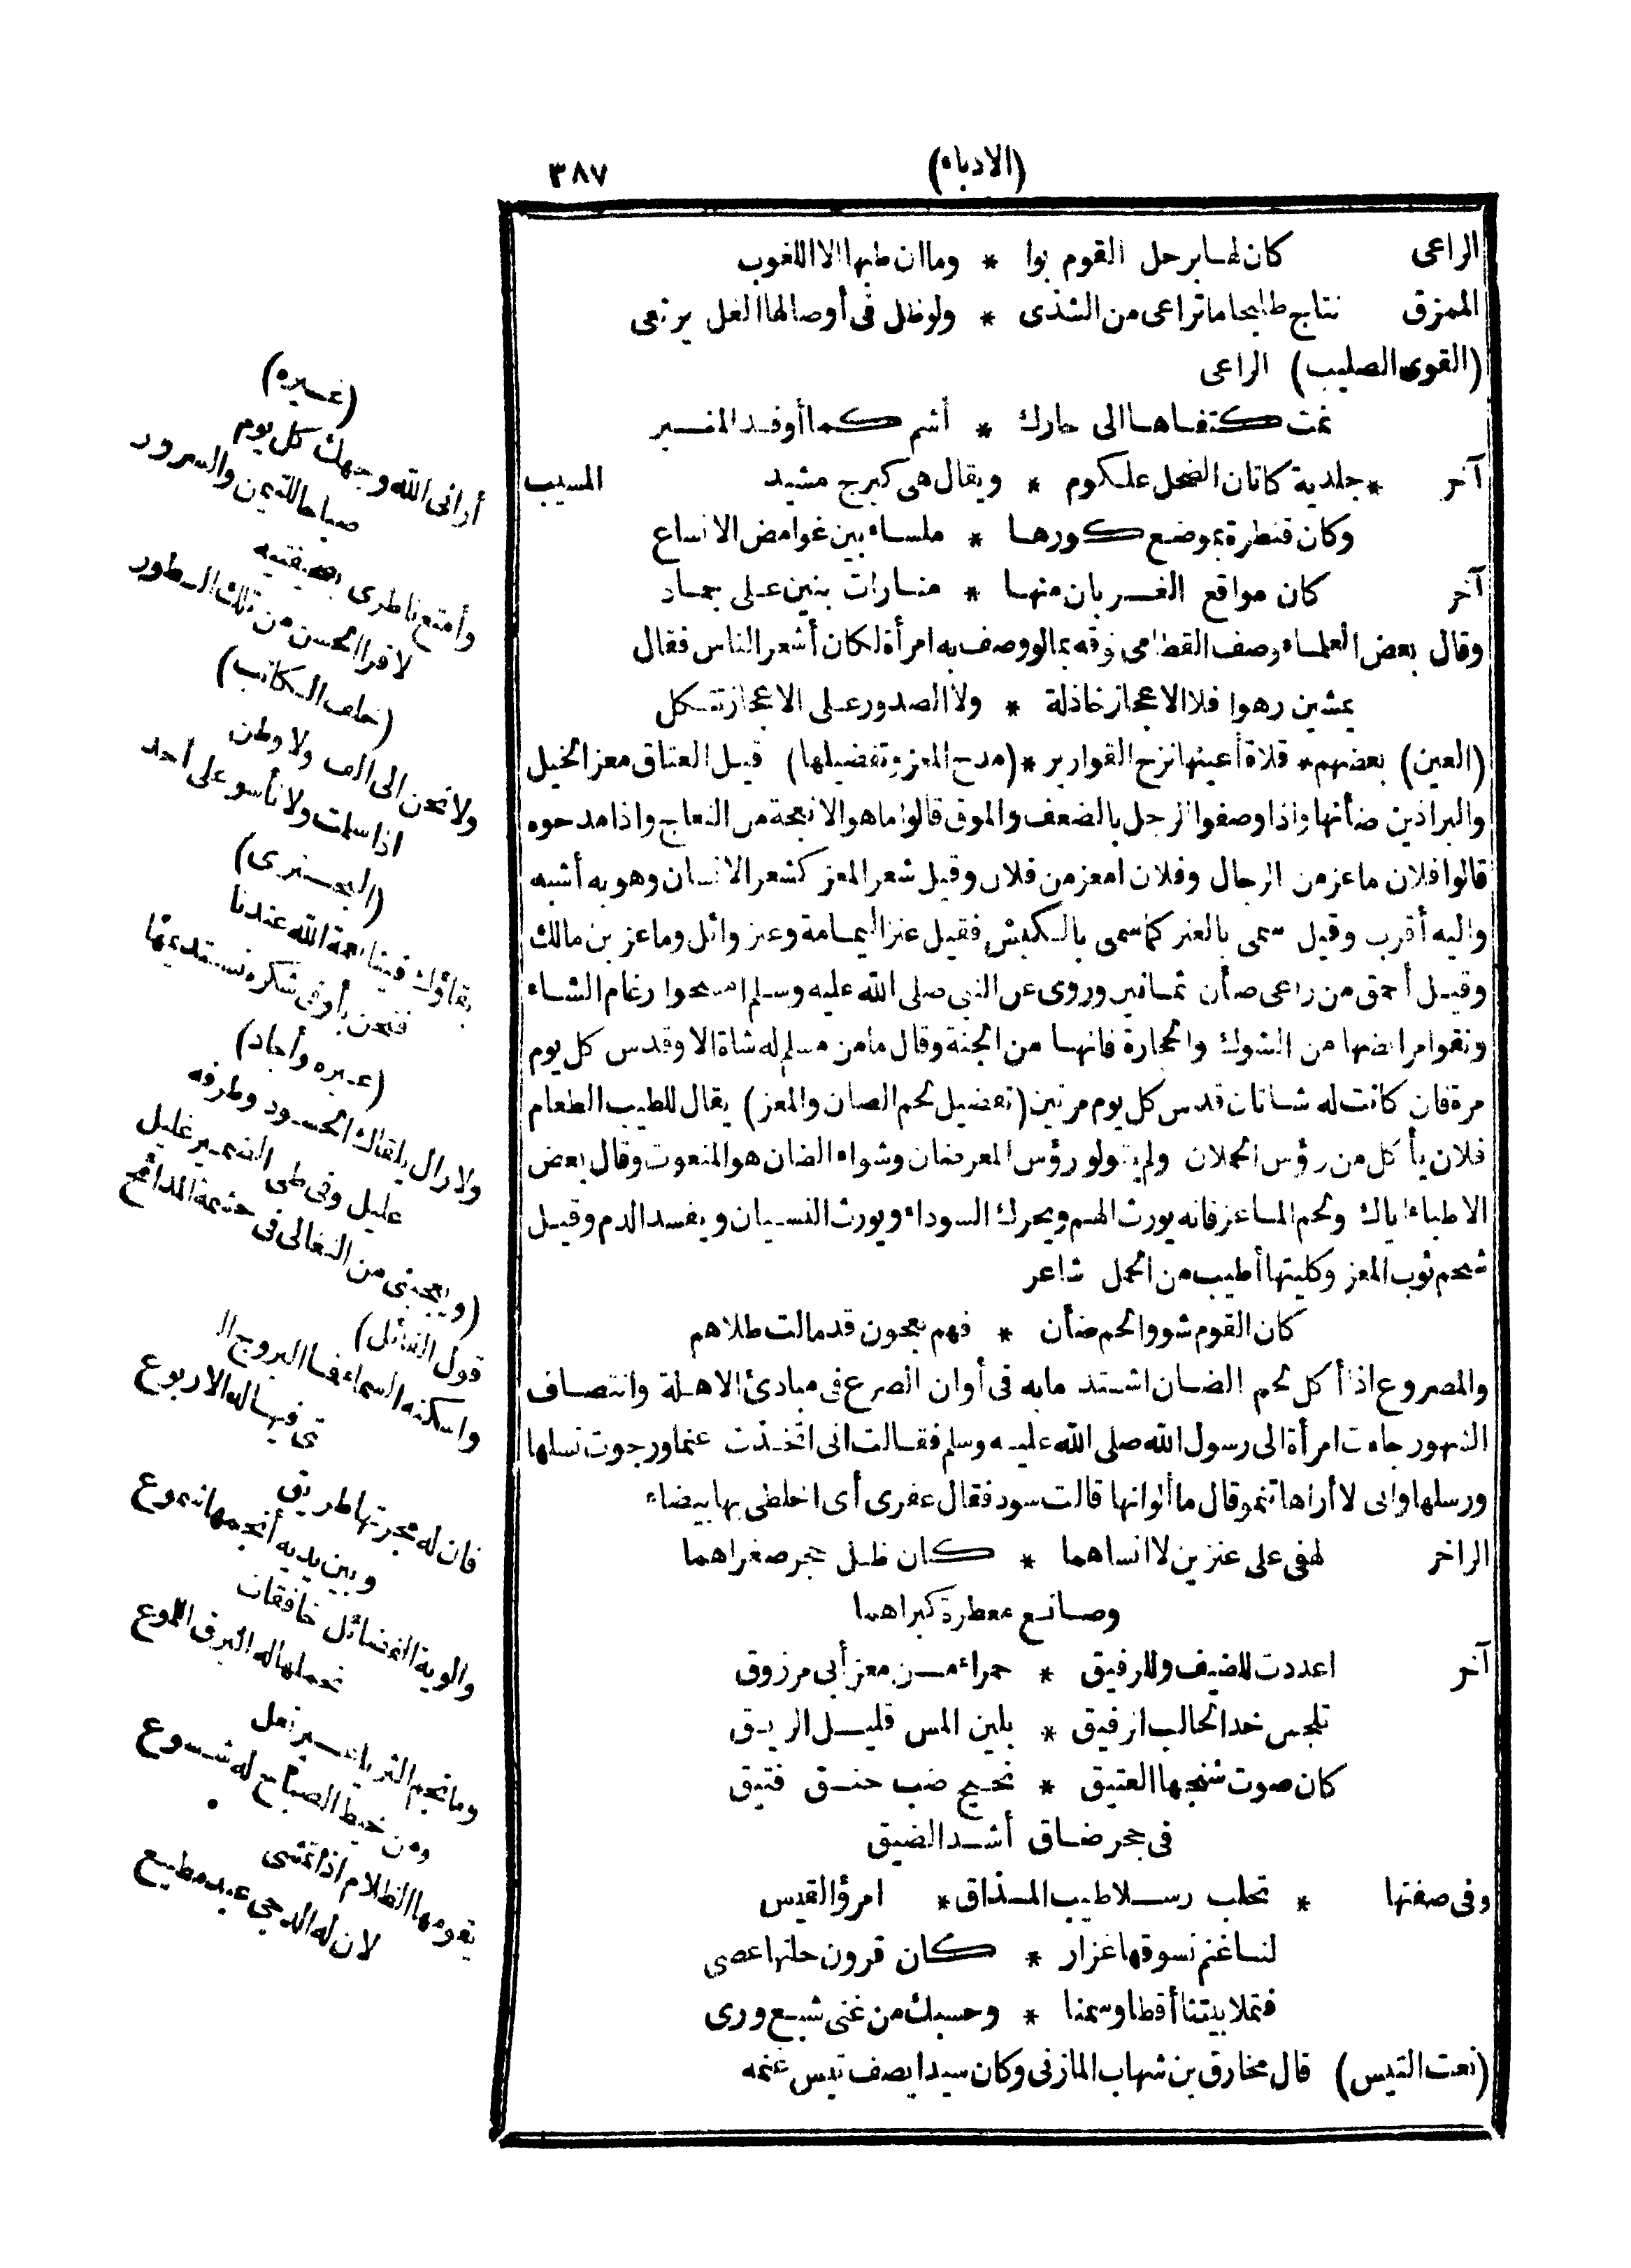 (الادباء)
٣٨٧
الراعى كان لها برحل القوم بوا * وما ان طبها الا اللغوب
الممزق نتايج طليحا ما تراعى من الشذى * ولو ظل فى أوصالها الغل يرتعى
(القوى الصليب) الراعى
نمت كتفاها الى حارك * أشم كما أوفد المنبر
آخر * جلدية كاتان الضحل علكوم * ويقال هى كبرج مشيد المسيب
وكان قنطرة بموضع كورها * ملساء بين غوامض الانساع
آخر كان مواقع الغربان منها * منارات بنين على جماد
وقال بعض العلماء وصف القطامى نوقه بما لو وصف به امرأة لكان أشعر الناس فقال
يمشين رهوا فلا الاعجاز خاذلة * ولا الصدور على الاعجاز تتكل
(العين) بعضهم * قلاة أعينها نزح القوارير * (مدح المعز وتفضيلها) قيل العتاق معز الخيل
والبراذين ضأنها واذا وصفوا الرجل بالضعف والموق قالوا ما هو الا نعجة من النعاج واذا مدحوه
قالوا فلان ماعز من الرجال وفلان امعز من فلان وقيل شعر المعز كشعر الانسان وهو به أشبه
واليه أقرب وقيل سمى بالعنز كما سمى بالكبش فقيل عنز اليمامة وعنز وائل وماعز بن مالك
وقيل أحمق من راعى ضأن ثمانين وروى عن النبى صلى الله عليه وسلم امسحوا رغام الشاء
ونقوا مرابضها من الشوك والحجارة فانها من الجنة وقال ما من مسلم له شاة الا وقدس كل يوم
مرة فان كانت له شاتان قدس كل يوم مرتين (تفضيل لحم الضان والمعز) يقال للطيب الطعام
فلان يأكل من رؤس الحملان ولم يقولو رؤس المعرضان وشواء الضان هو المنعوت وقال بعض
الاطباء اياك ولحم الماعز فانه يورث الهم ويحرك السوداء ويورث النسيان ويفسد الدم وقيل
شحم ثوب المعز وكليتها أطيب من الحمل شاعر
كان القوم شووا لحم ضأن * فهم بعجون قد مالت طلاهم
والمصروع اذا أكل لحم الضان اشتد ما به فى أوان الصرع فى مبادئ الاهلة وانتصاف
الشهور جاءت امرأة الى رسول الله صلى الله عليه وسلم فقالت انى اتخذت غنما ورجوت نسلها
ورسلها وانى لا أراها تنمو قال ما ألوانها قالت سود فقال عفرى أى اخلطى بها بيضاء
الراخر لهفى على عنزين لا انساهما * كان ظل حجر صغراهما
وصانع معطرة كبراهما
آخر اعددت للضيف وللرفيق * حمراء من معز أبى مرزوق
تلحس خد الحالب الرفيق * بلين المس قليل الريق
كان صوت شخبها العتيق * نحيح ضب حنق فتيق
فى جحر ضاق أشد الضيق
وفى صفتها * تحلب رسلا طيب المذاق * امرؤ القيس
لنا غنم نسوقها غزار * كان قرون جلتها عصى
فتملا بيتنا أقطا وسمنا * وحسبك من غنى شبع ورى
(نعت التيس) قال مخارق بن شهاب المازنى وكان سيدا يصف تيس غنمه
(غيره)
أرانى الله وجهك كل يوم
صباحا للتيمن والسرور
وأمتع ناظرى بصفحتيه
لاقرا الحسن من تلك السطور
(خلف الكاتب)
ولا تحن الى الف ولا وطن
اذا سلمت ولا تأسو على أحد
(البحترى)
بقاؤك فينا نعمة الله عندنا
فنحن بأوفى شكره نستديمها
(غيره وأجاد)
ولا زال يلقاك الحسود وطرفه
عليل وفى طى الضمير غليل
(ويعجبنى من التغالى فى حشمة المدائح
قول القائل)
واسكنه السماء فما البروج ال
تى فيها له الا ربوع
فان له مجرتها طريق
وبين يديه أنجمها شموع
والوية الفضائل خافقات
تحملها له البرق اللموع
وما نجم الثريا غير نعل
ومن خيط الصباح له شسوع
يقومها الظلام اذا تمشى
لان له الدجى عبد مطيع